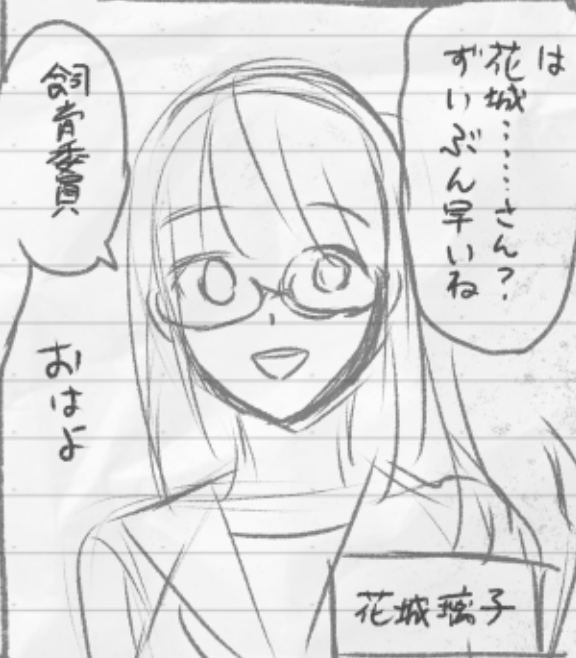 は
花城……さん?
ずいぶん早いね
飼育委員
おはよ
花城璃子